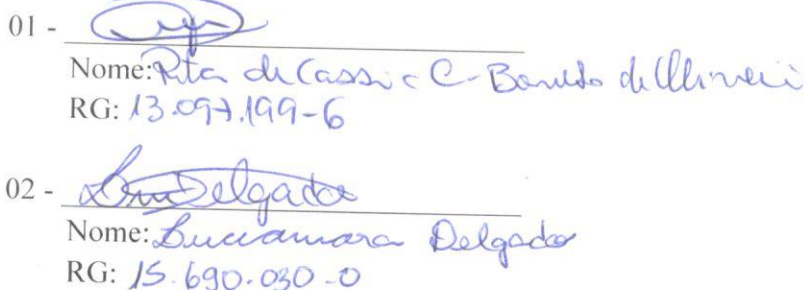 01 -
Nome: Rita de Cassia C. Barreto de Oliveira
RG: 13.097.199-6
02 - Delgado
Nome: Luciamara Delgado
RG: 15.690.030-0